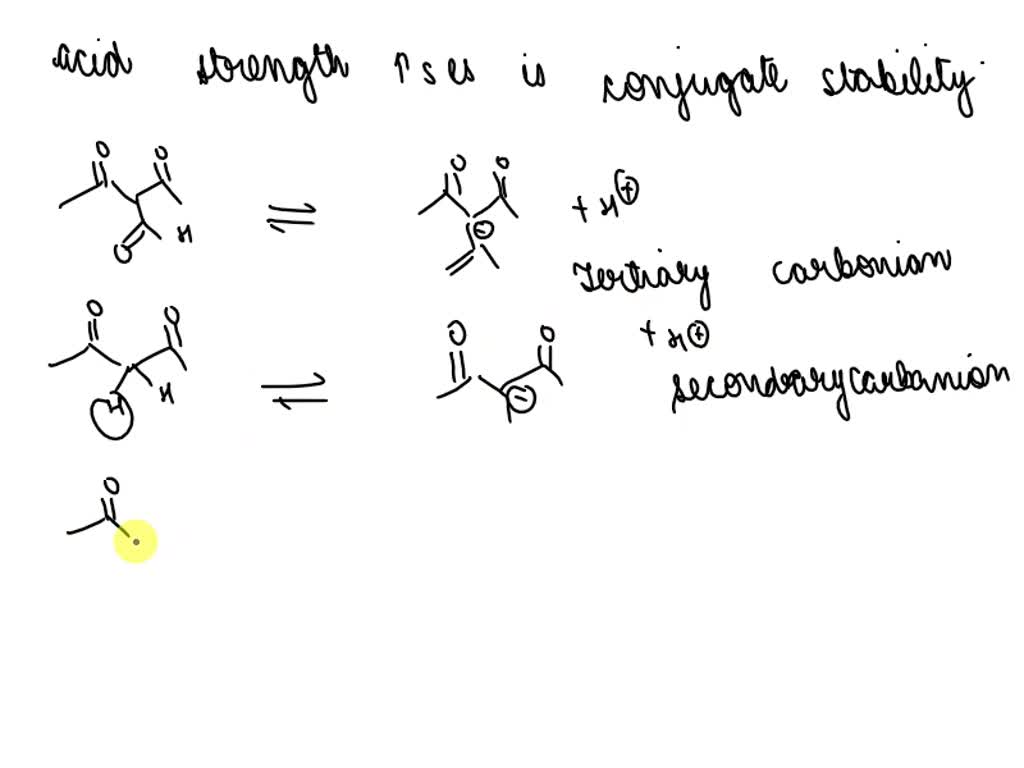 acid strength ↑ses is conjugate stability
O O O O
+ H⊕
O H ⊖
tertiary carbonian
O O O O + H⊕
H H ⊖ secondary carbanion
O